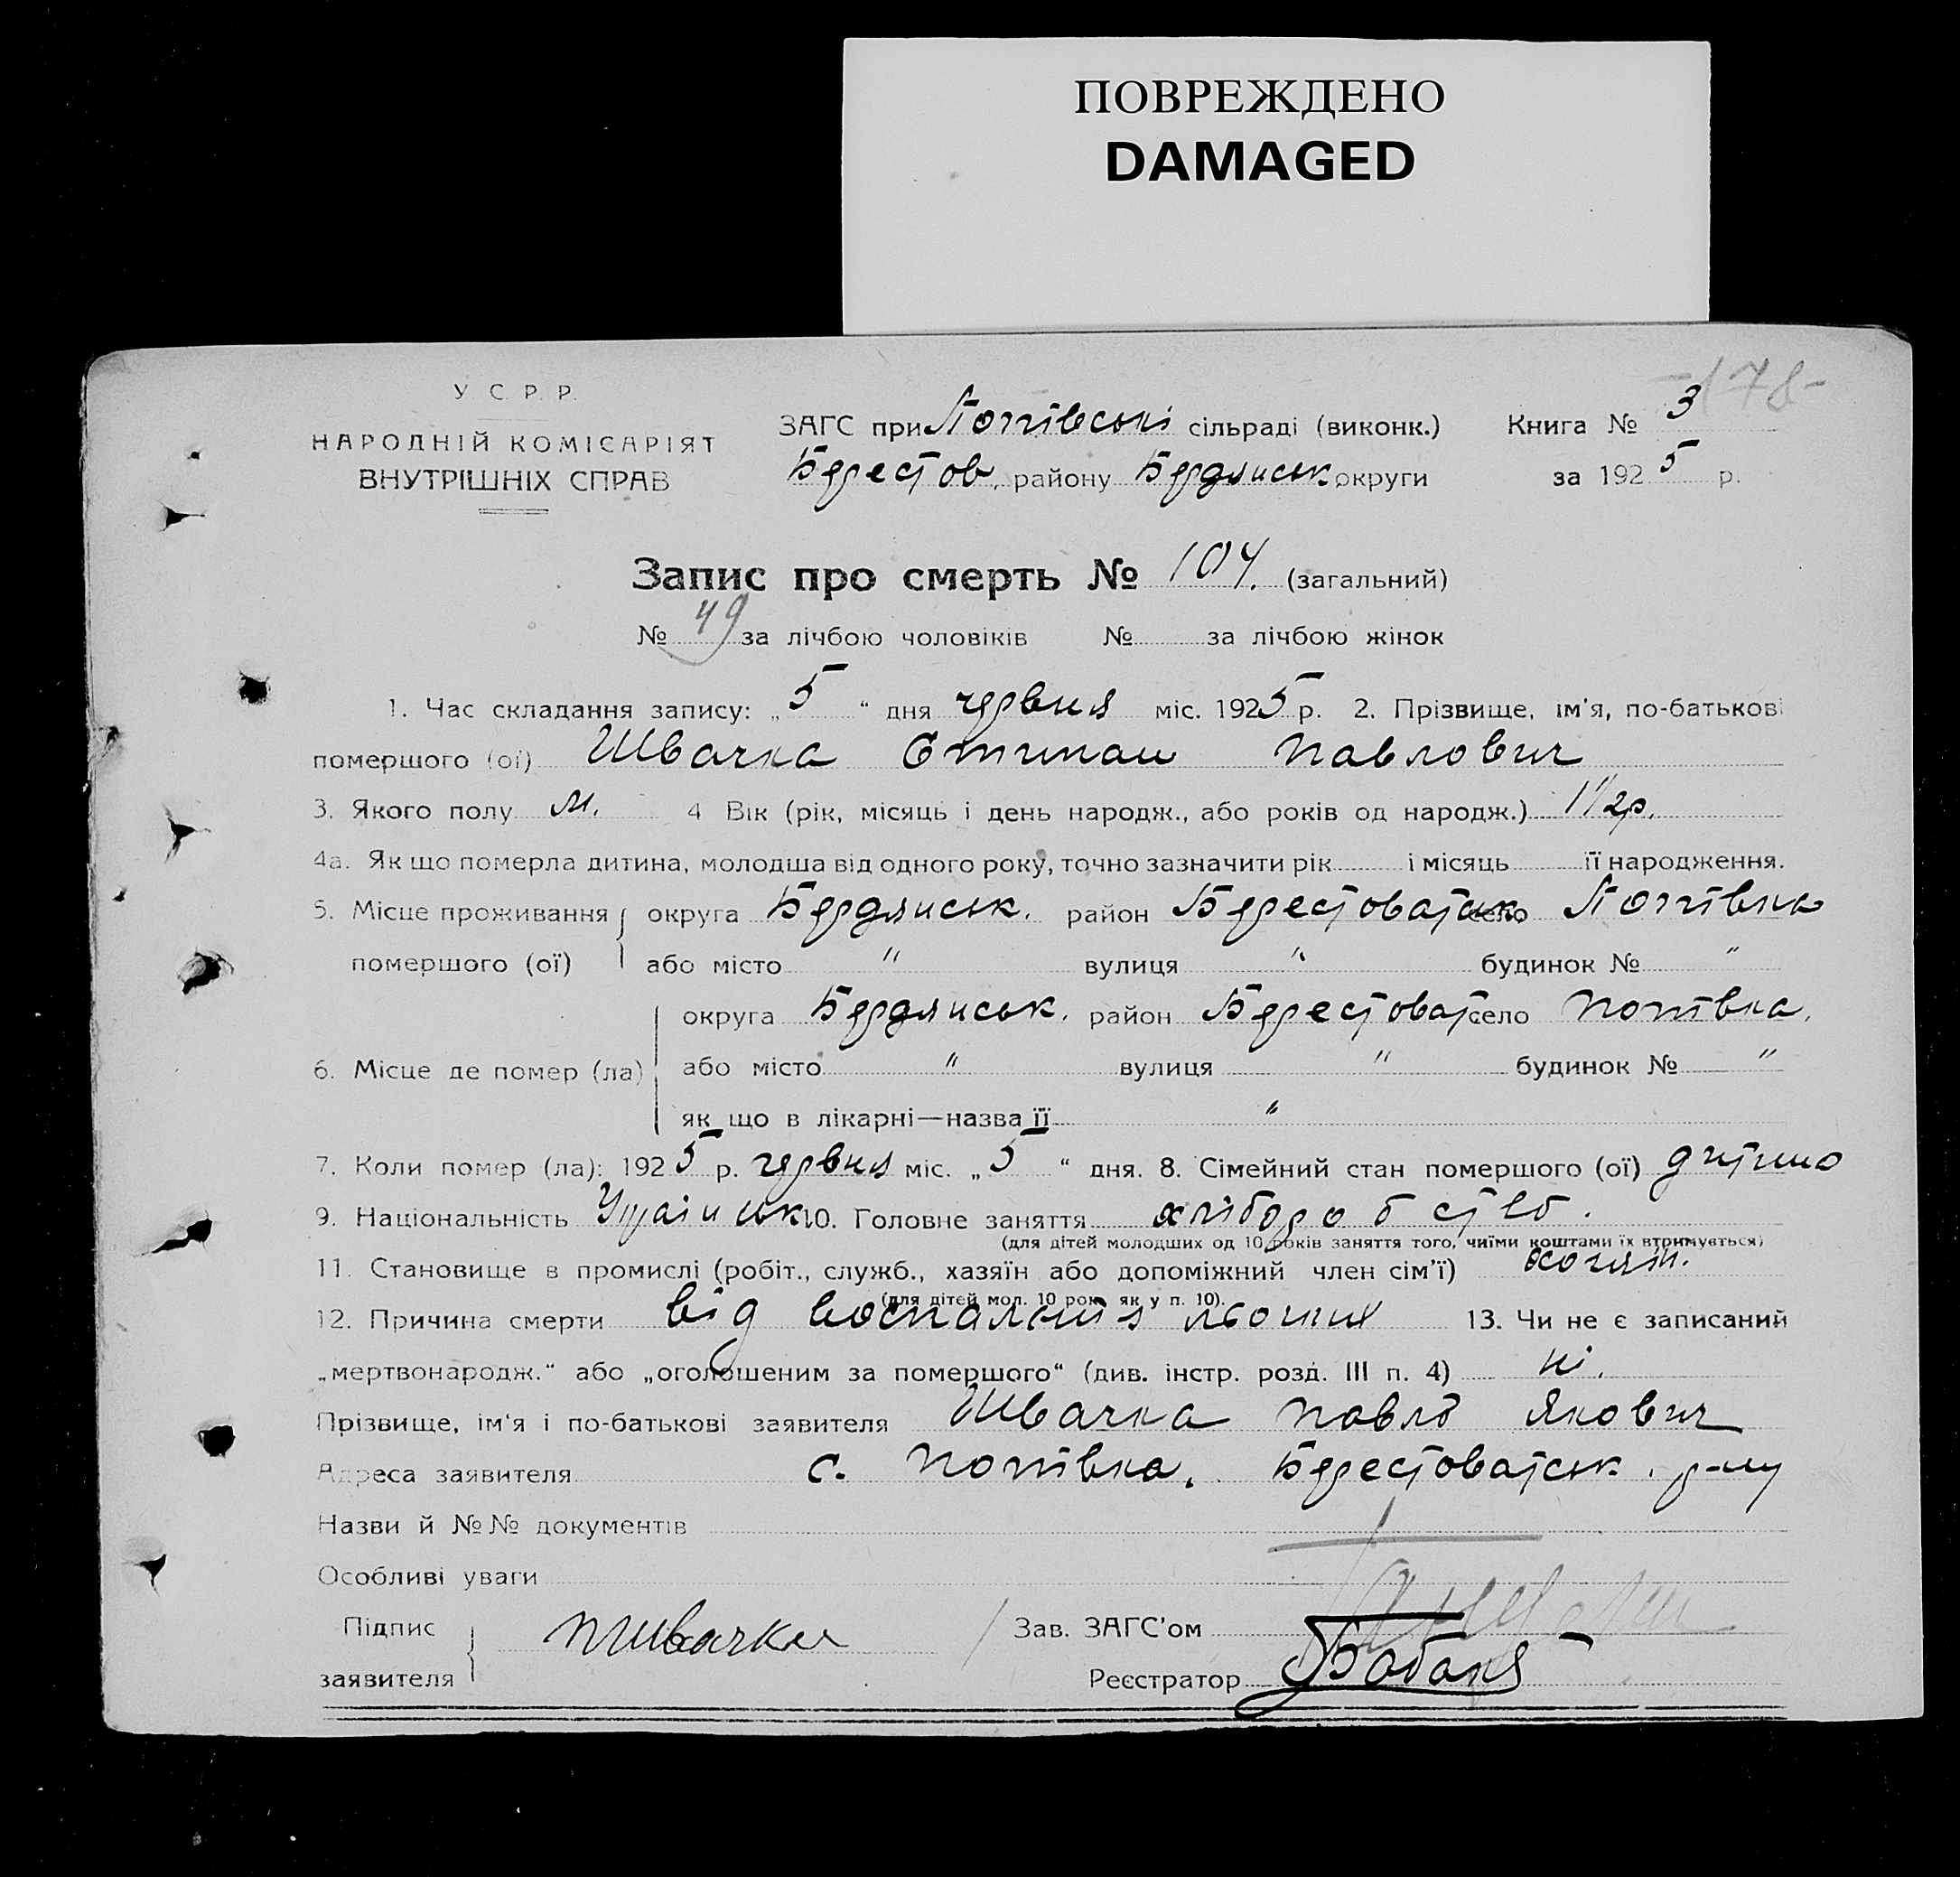 ПОВРЕЖДЕНО
DAMAGED
-178-
У С. Р. Р.
НАРОДНІЙ КОМІСАРІЯТ
ВНУТРІШНІХ СПРАВ
ЗАГС при Попівські сільраді (виконк.) Книга № 3
Берестов. району Бердянськ округи за 1925 р.
Запис про смерть № 104. (загальний)
№ 49 за лічбою чоловіків № за лічбою жінок
1. Час складання запису: „5“ дня червня міс. 1925 р. 2. Прізвище, ім'я, по-батькові
помершого (ої) Швачка Степан Павлович
3. Якого полу м. 4 Вік (рік, місяць і день народж., або років од народж.) 1 1/2 р.
4а. Як що померла дитина, молодша від одного року, точно зазначити рік і місяць її народження.
5. Місце проживання округа Бердянськ. район Берестоватськ село Попівка
помершого (ої) або місто " вулиця " будинок № "
округа Бердянськ. район Берестоват село Попівка.
6. Місце де помер (ла) або місто " вулиця " будинок № "
як що в лікарні—назва її "
7. Коли помер (ла): 1925 р. червня міс. „5“ дня. 8. Сімейний стан помершого (ої) дитина
9. Національність Украінськ 10. Головне заняття хліборобство.
(для дітей молодших од 10 років заняття того, чиїми коштами їх втримується)
11. Становище в промислі (робіт., служб., хазяїн або допоміжний член сім'ї) хозяін.
(для дітей мол. 10 рок. як у п. 10).
12. Причина смерти від воспалення 13. Чи не є записаний
„мертвонародж.“ або „оголошеним за помершого“ (див. інстр. розд. III п. 4) ні.
Прізвище, ім'я і по-батькові заявителя Швачка Павло Якович
Адреса заявителя с. Попівка, Берестоватськ. р-ну
Назви й №№ документів
Особливі уваги
Підпис Зав. ЗАГС'ом
заявителя Реєстратор